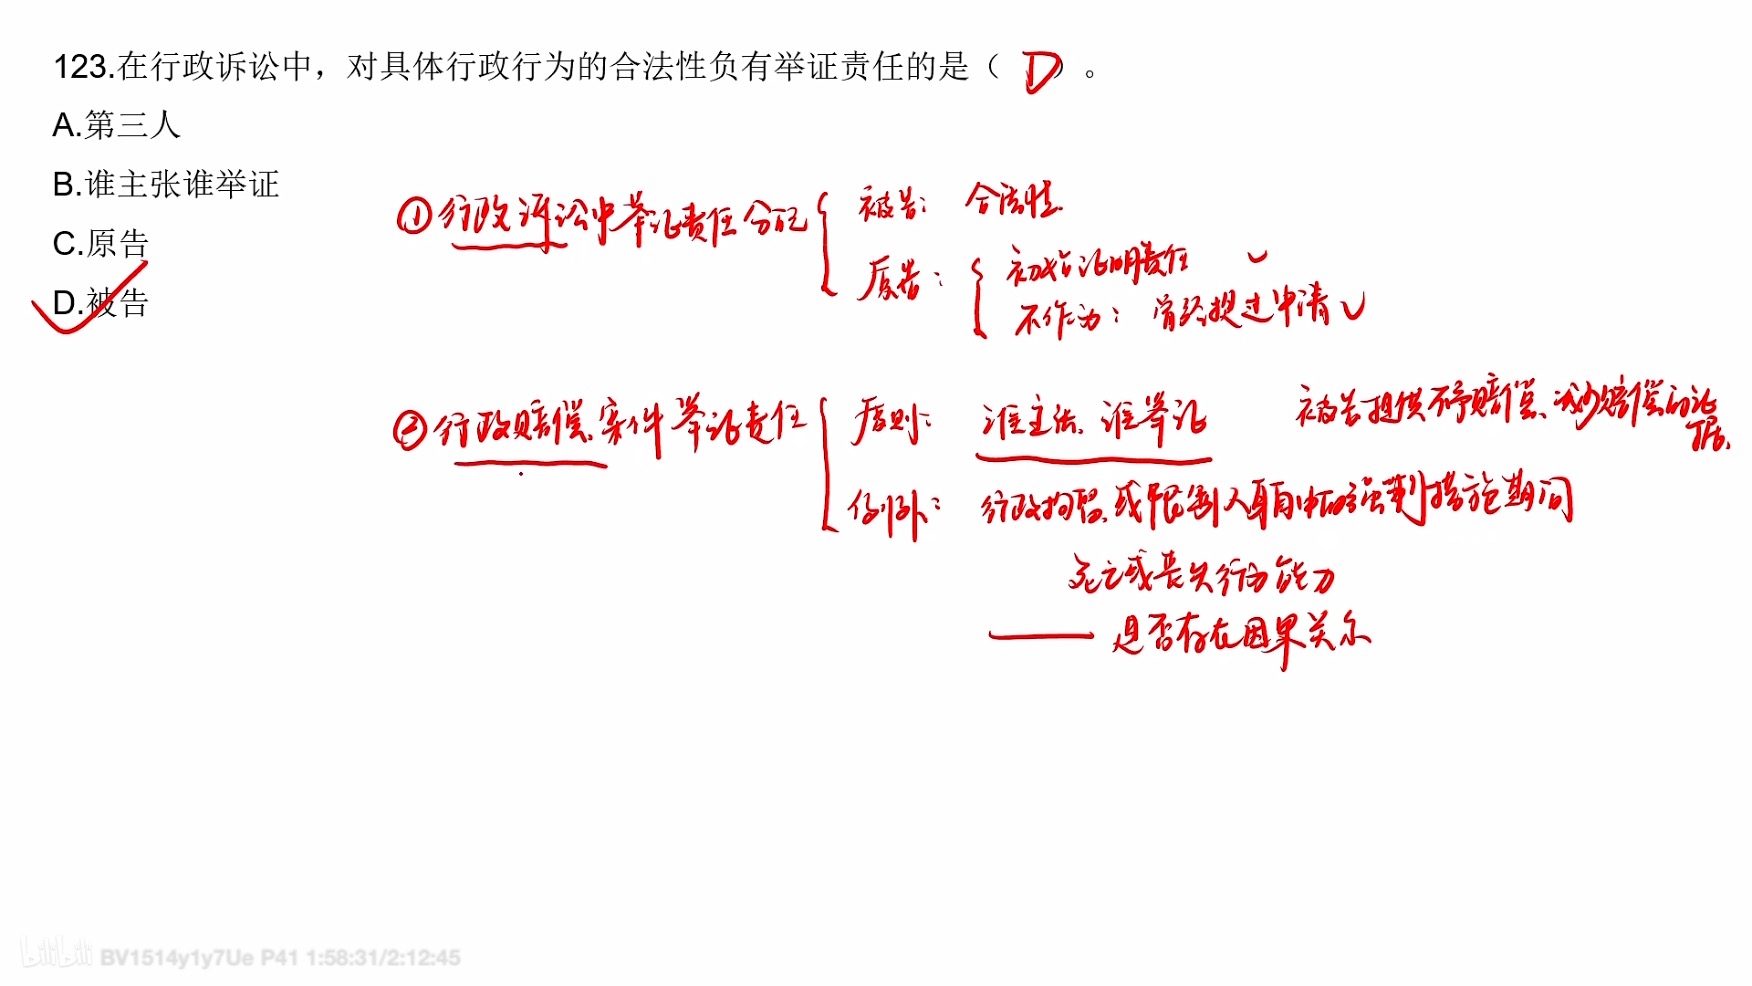 123.在行政诉讼中，对具体行政行为的合法性负有举证责任的是（ D ）。
A.第三人
B.谁主张谁举证
C.原告
D.被告
①行政诉讼中举证责任分配
被告：合法性
原告：
初始证明责任
不作为：曾经提过申请
②行政赔偿案件举证责任
原则：谁主张，谁举证
被告提供不予赔偿、减少赔偿的证据
例外：行政拘留或限制人身自由的强制措施期间
死亡或丧失行为能力
——是否存在因果关系
bilibili BV1514y1y7Ue P41 1:58:31/2:12:45